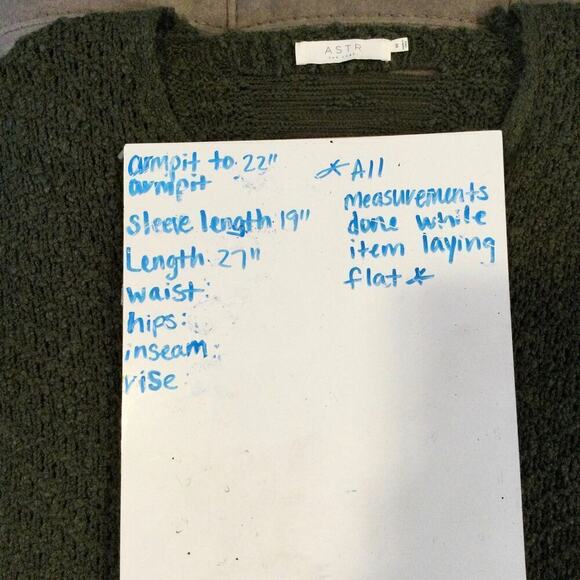 ASTR
THE LABEL
armpit to 22"
armpit
sleeve length: 19"
Length: 27"
waist:
hips:
inseam:
rise:
*All
measurements
done while
item laying
flat*